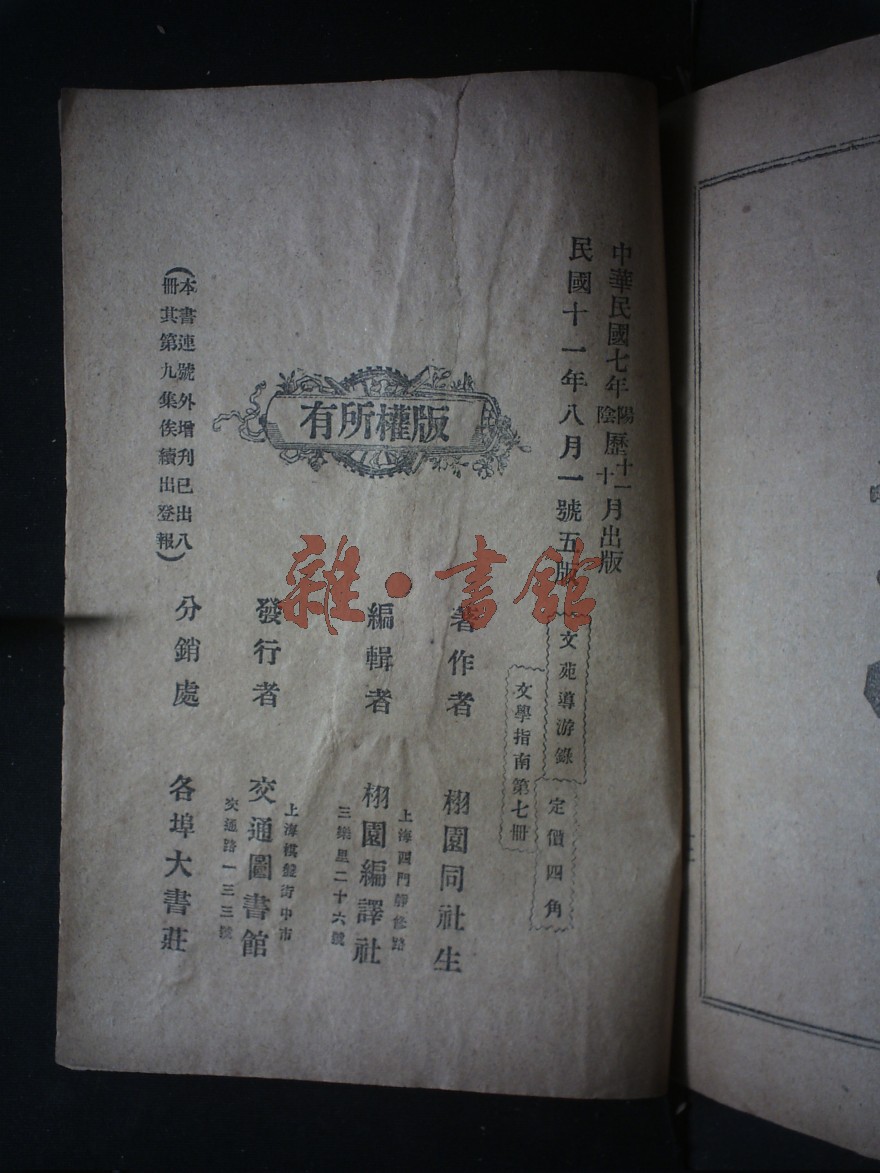 中華民國七年陽陰歷十一十月出版
民國十一年八月一號五版
文苑導游錄
定價四角
文學指南第七冊
著作者
栩園同社生
編輯者
上海西門靜修路
三樂里二十六號
栩園編譯社
發行者
上海棋盤街中市
交通路一三三號
交通圖書館
分銷處
各埠大書莊
版權所有
(本書連號外增刊已出八
冊其第九集俟續出登報)
雜·書館